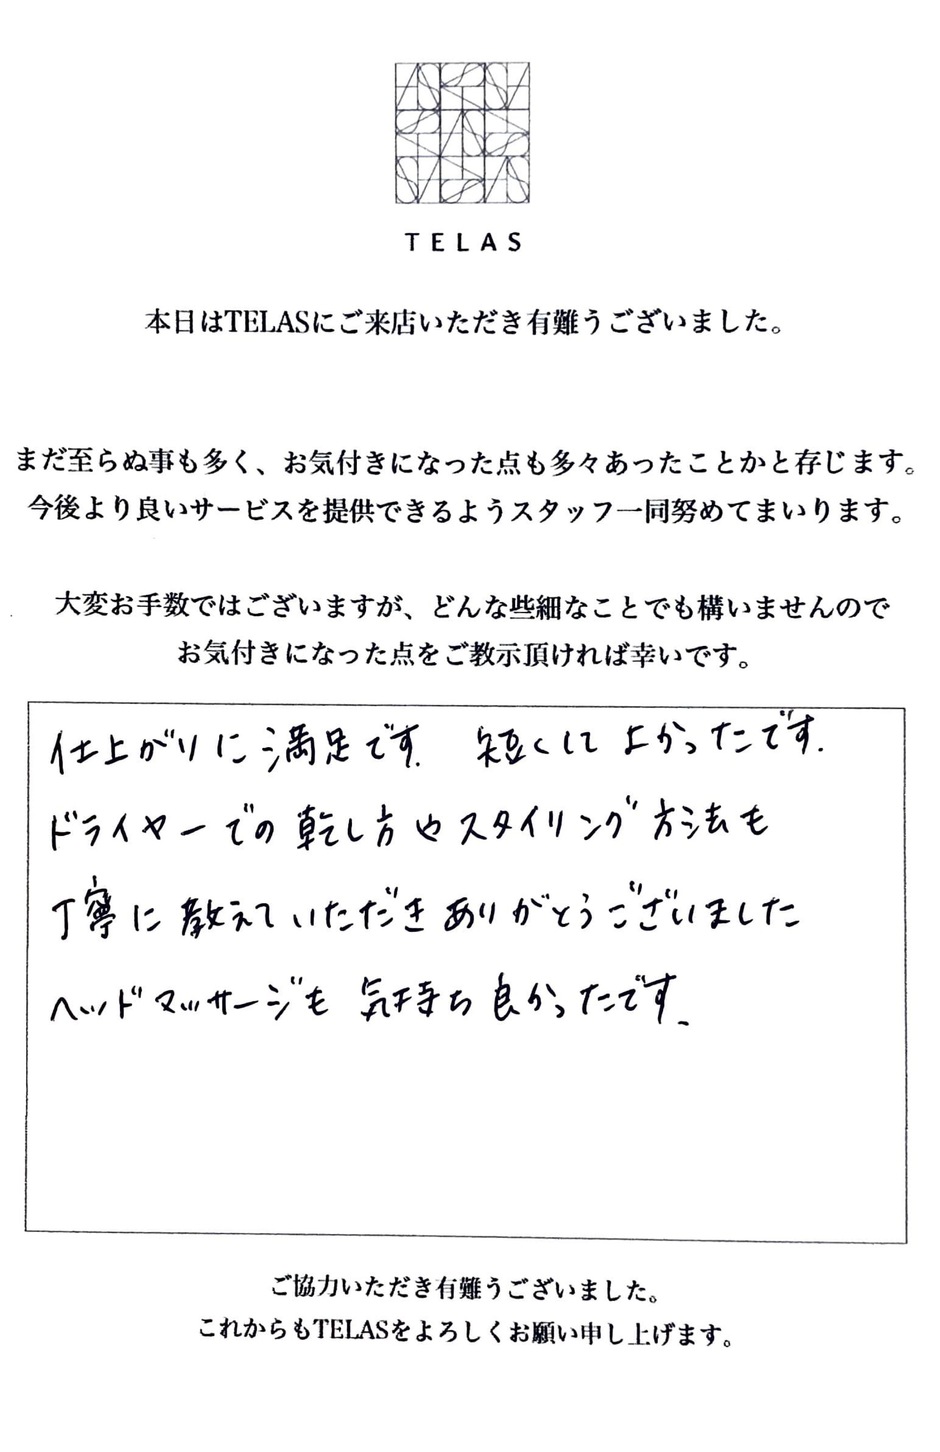 TELAS
本日はTELASにご来店いただき有難うございました。
まだ至らぬ事も多く、お気付きになった点も多々あったことかと存じます。
今後より良いサービスを提供できるようスタッフ一同努めてまいります。
大変お手数ではございますが、どんな些細なことでも構いませんので
お気付きになった点をご教示頂ければ幸いです。
仕上がりに満足です. 短くしてよかったです.
ドライヤーでの乾し方やスタイリング方法も
丁寧に教えていただきありがとうございました
ヘッドマッサージも気持ち良かったです.
ご協力いただき有難うございました。
これからもTELASをよろしくお願い申し上げます。